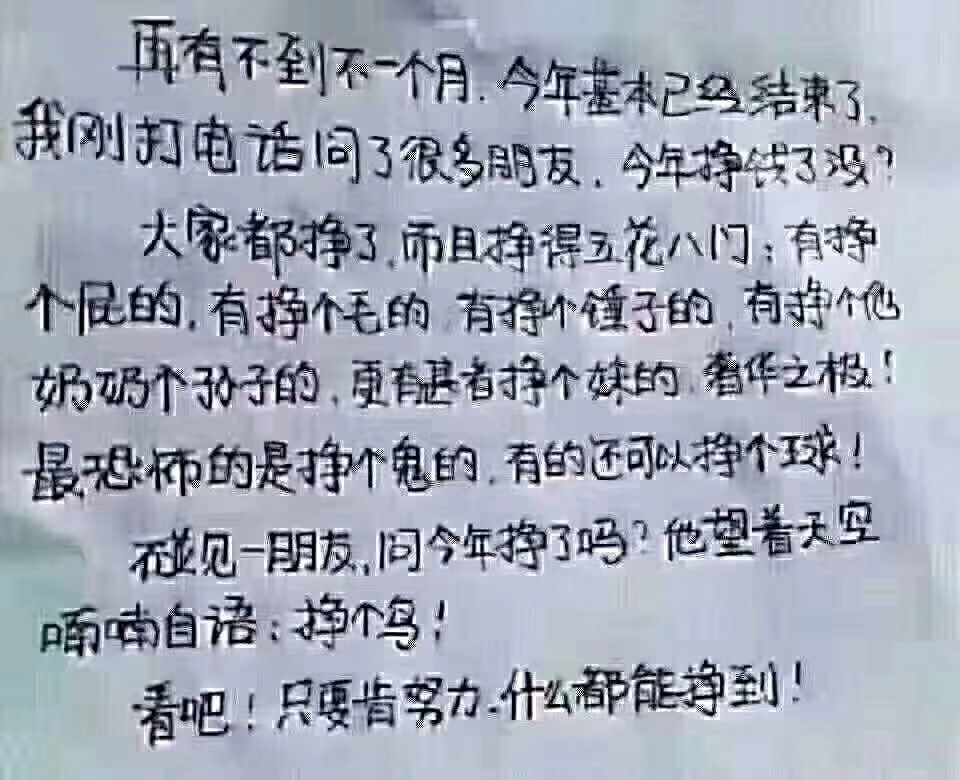 再有不到不一个月.今年基本已经结束了.
我刚打电话问了很多朋友.今年挣钱了没?
大家都挣了,而且挣得五花八门:有挣
个屁的,有挣个毛的,有挣个锤子的,有挣个他
奶奶个孙子的,更有甚者挣个妹的,奢华之极!
最恐怖的是挣个鬼的,有的还可以挣个球!
碰见一朋友,问今年挣了吗?他望着天空
喃喃自语:挣个鸟!
看吧!只要肯努力.什么都能挣到!